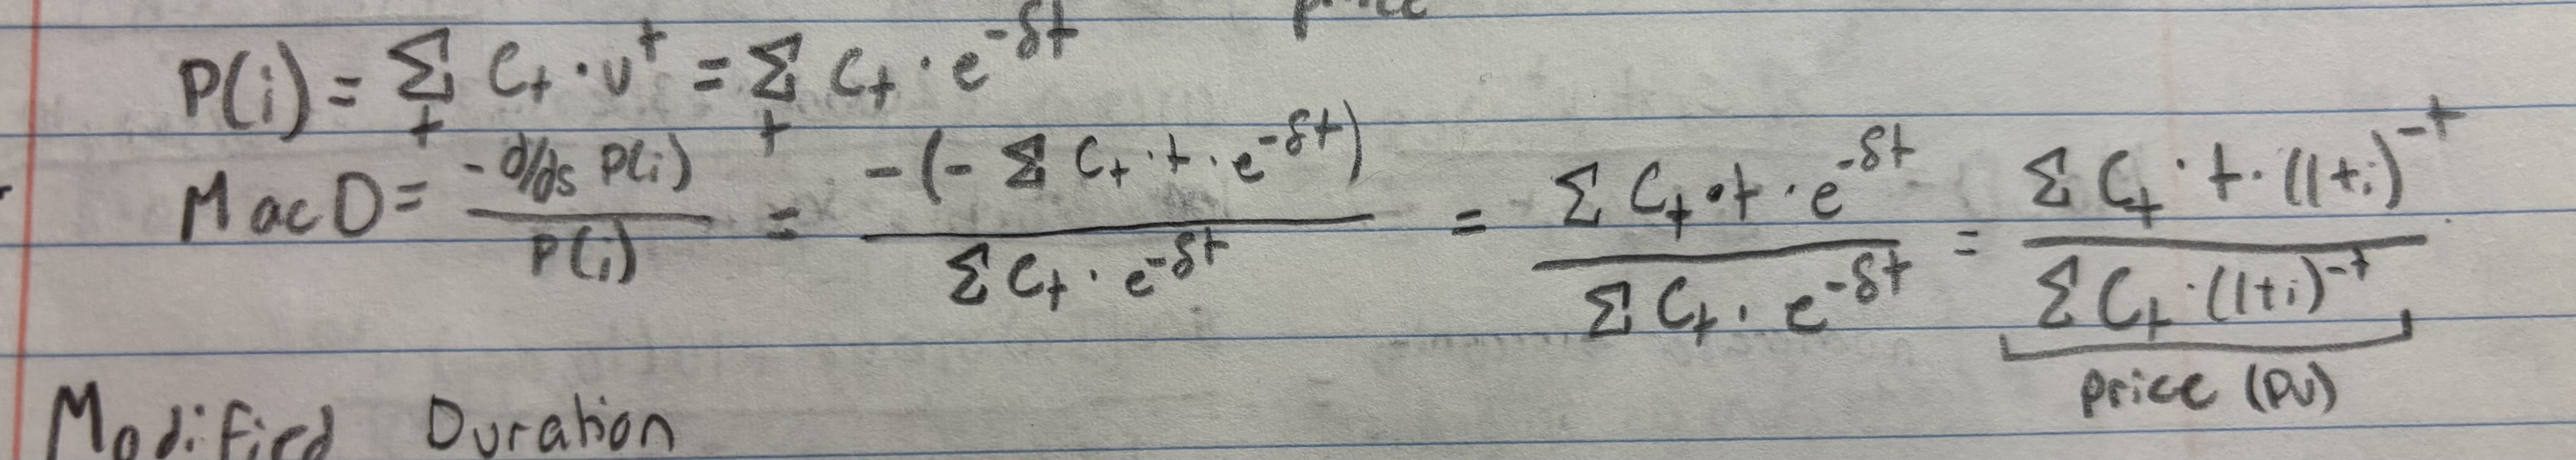 price
P(i) = Σ_t C_t · v^t = Σ_t C_t · e^{-δt}
MacD = \frac{-d/dδ P(i)}{P(i)} = \frac{-(-Σ C_t · t · e^{-δt})}{Σ C_t · e^{-δt}} = \frac{Σ C_t · t · e^{-δt}}{Σ C_t · e^{-δt}} = \frac{Σ C_t · t · (1+i)^{-t}}{Σ C_t · (1+i)^{-t}}
price (PV)
Modified Duration